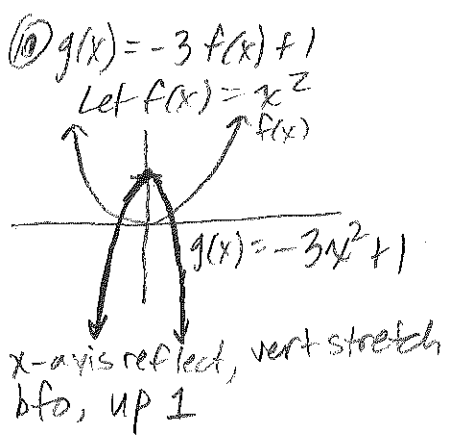 ⑩ g(x) = -3 f(x) + 1
Let f(x) = x²
f(x)
g(x) = -3x² + 1
x-axis reflect, vert stretch
bfo, up 1